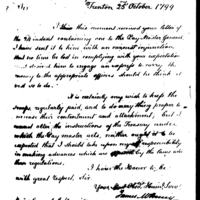 Trenton 28th October 1799
I this moment received your letter of
the 2d instant containing one to the Pay Master General
I have sent it to him with an earnest injunction
that no time be lost in complying with your expectation.
I direct him to engage an express to carry the
money to the appropriate officers should he think it
ed us to do.
It is certainly my wish to keep the
troops regularly paid, and to do many things to
increase their contentment and attachment, but I
must obey the instructions of the Treasury under
which the Pay master acts, neither ought it to be
expected that I should take upon myself responsibility
in making advances which are by the laws or
than regulations.
I have the Honor to be
with great respect, Sir
Your most obedt. Humb. Serv.
James McHenry